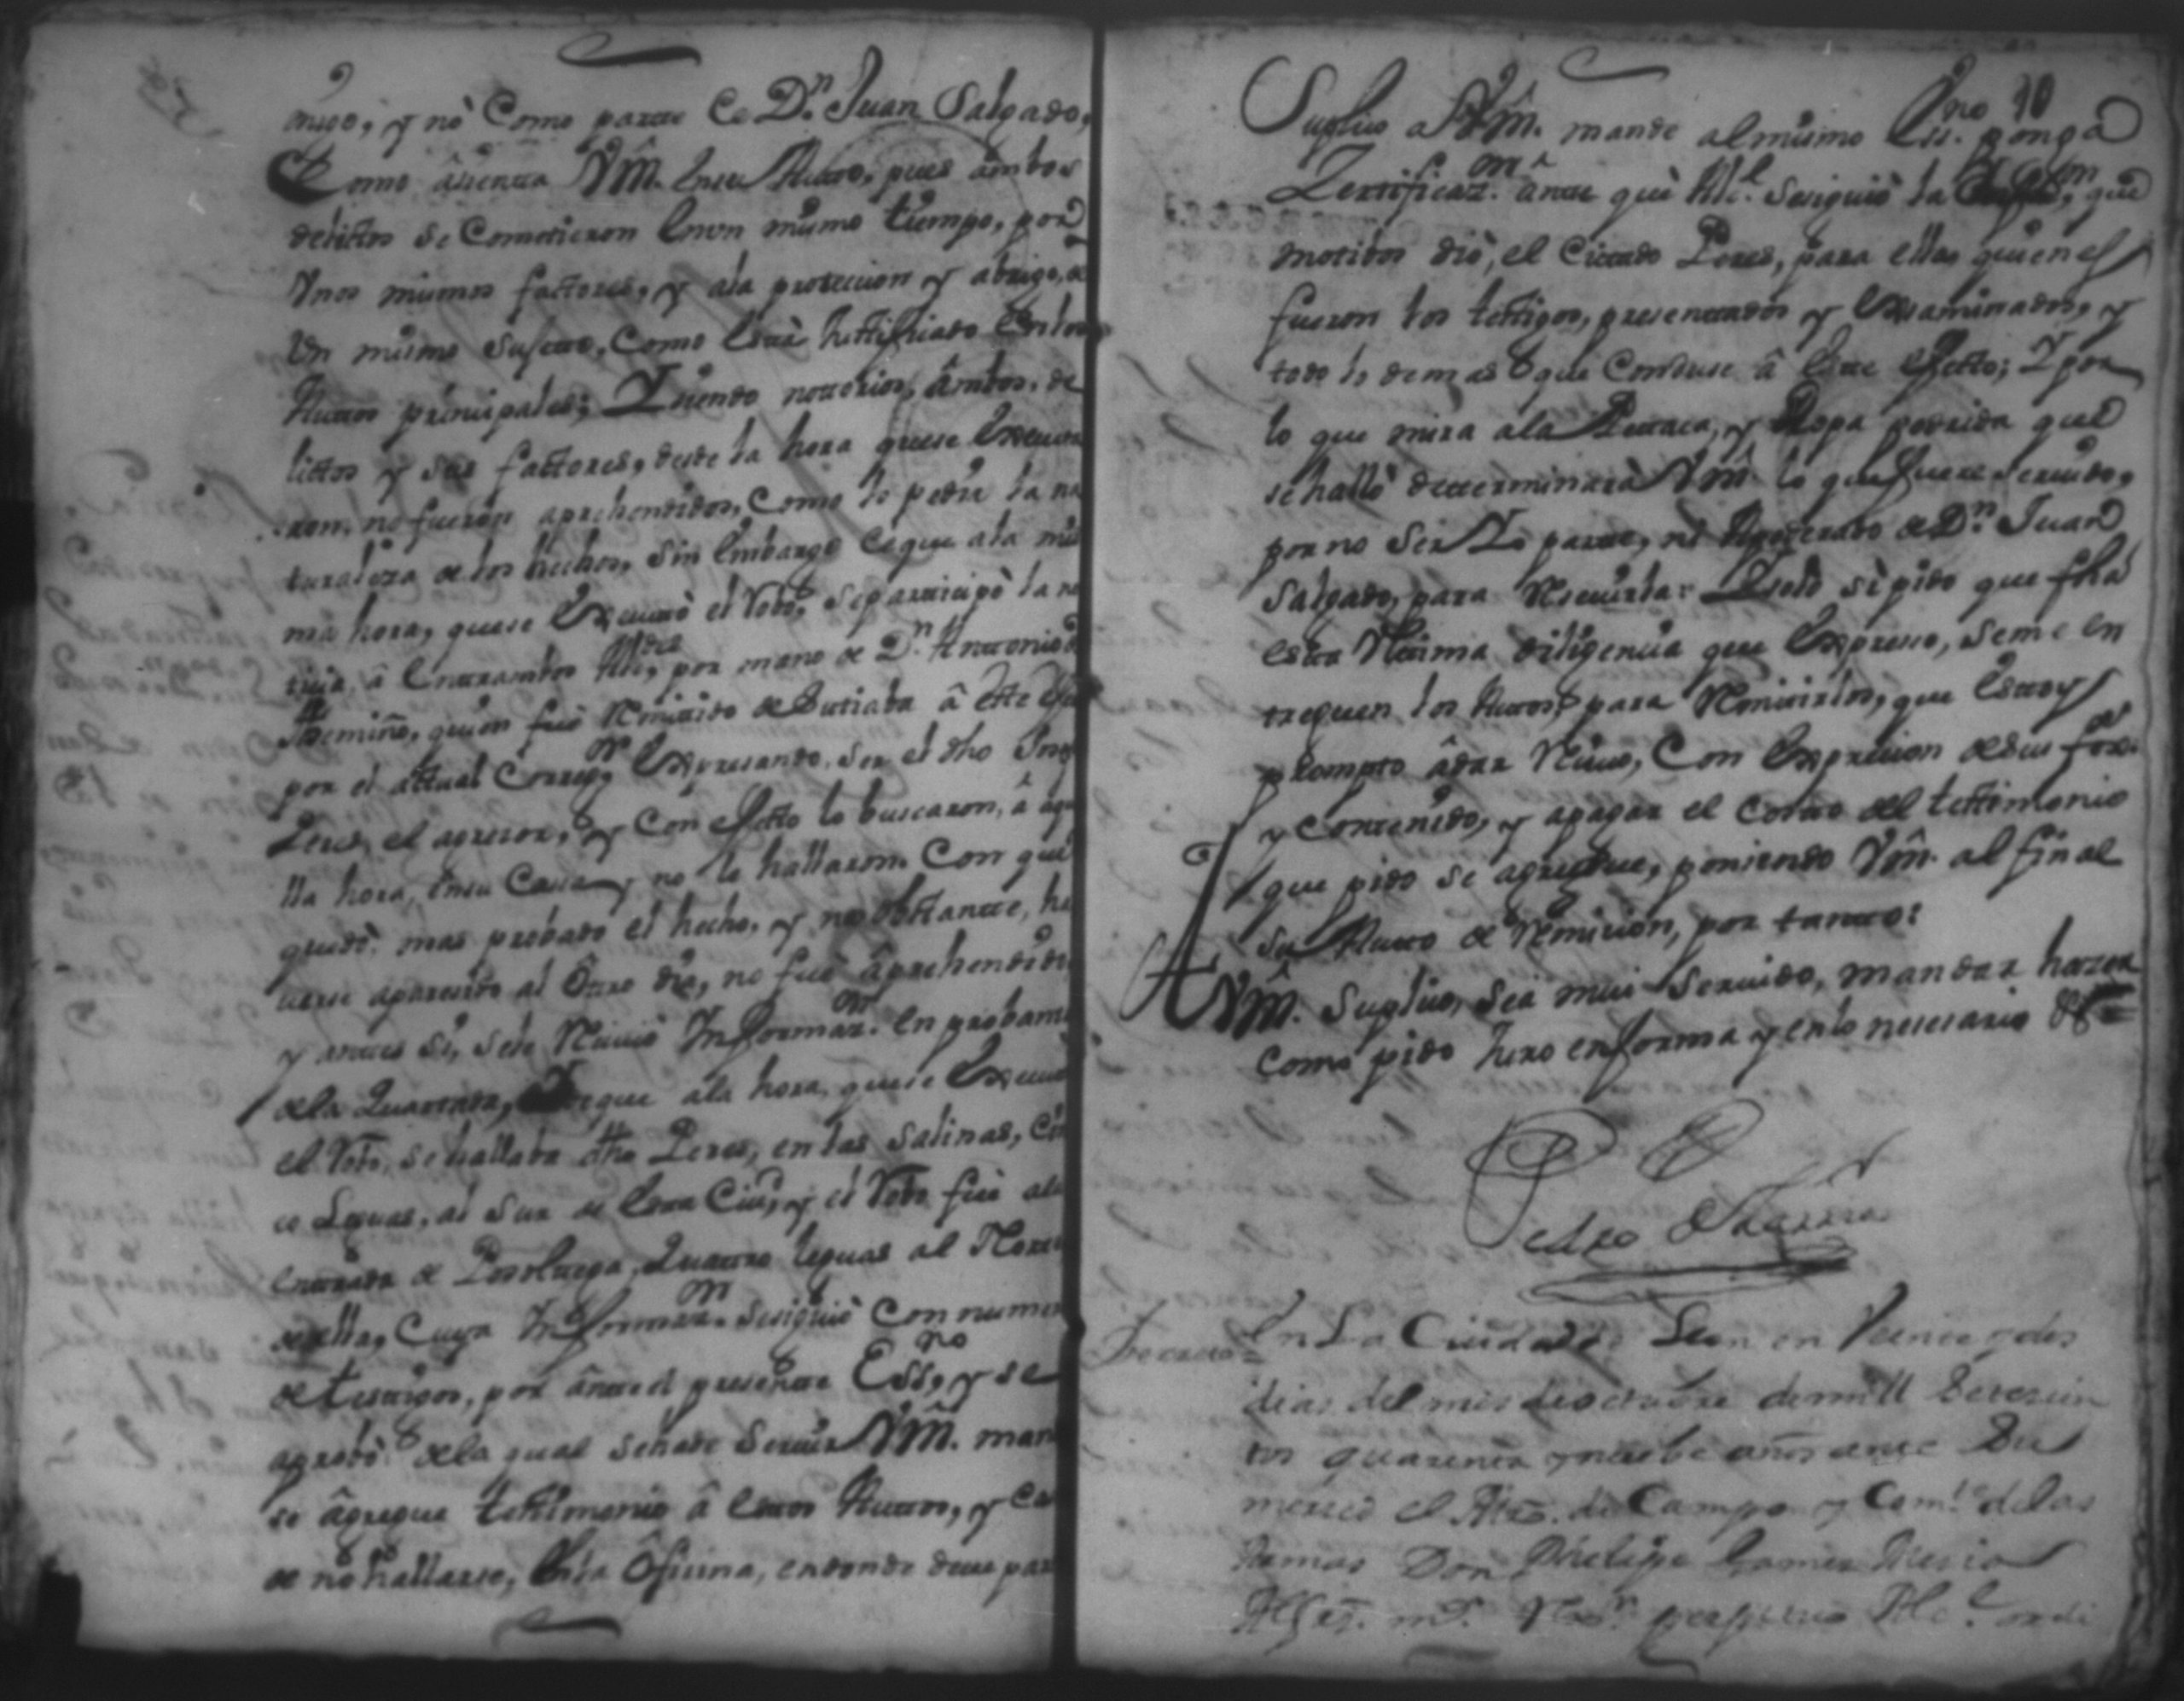 migo, y nò Como parte de D.n Juan Salgado,
Como âsienta Vm̂. en su Autto, pues ambos
delictos se Cometieron en un mismo tiempo, por
Unos mismos factores, y ala protección y abrigo, de
Un mismo Sujetto, Como està Justtificado en los
Auttos principales; Y siendo nottorios, âmbos, de
lictos y sus factores, desde la hora que se executa
ron, no fueron aprehendidos, Como lo pedia la na
turaleza de los hechos, Sin embargo de que ala mis
ma hora, que se executò el Robo, se participò la no
ticia, â entrambos Alc.des, por mano de D.n Anttonio
fue Remitido de Sutiaba â este
por el attual Correg.or expresando, ser el dho
Peres, el agresor, y Con efectto lo buscaron, â aque
lla hora, en su Casa y no lo hallaron. Con que
quedò mas probado el hecho, y no obstante, ha
verse aparecido al ôtro dia, no fue âprehendido
y antes si, se le Reciviò Informaz.on en probanza
de la Quartada, de que ala hora, que se executò
el Robo, se hallaba dho Peres, en las Salinas, Cin
co Leguas, al Sur de esta Ciud, y el Robo fue ala
entrada de Posoltega, Quattro leguas al Norte
de ella, Cuya Informaz.on se siguiò Con numero
de testigos, por ânte el presente Ess.no, y se
aprobò de la qual se ha de Servir Vm̂. man
se âgregue testtimonio â estos Auttos, y Ca
de no hallarse, en la Ôficina, en donde deve par
10
Suplico a Vm̂. mande al mismo Ess.no ponga
Zertificaz.on ante què Alc.e se siguiò la que
motibos diò, el Cittado Peres, para ella, quienes
fueron los testtigos, presentados y examinados, y
todo lo demas que Conduse â este efectto; Y por
lo que mira ala Pettaca, y Ropa podrida que
se hallò determinarà Vm̂. lo que fuere servido,
por no Ser Yo parte, ni Apoderado de D.n Juan
Salgado, para Recivirla: Y solo sì pido que fha
esta Ultima diligencia que expreso, se me en
treguen los Auttos, para Remitirlos, que estoy
prompto âdar Recivo, Con expresion de sus fox.s
y Contenido, y apagar el Costo del testtimonio
que pido se agregue, poniendo Vm̂. al final
su Autto de Remision, por tanto:
A Vm̂. Suplico, sea mui Servido, mandar hazer
Como pido Juro en forma y en lo necesario &.a =
Pedro
En La Ciudad de Leon en Veinte y dos
dias del mes de octubre de mill setesien
tos quarenta y nuebe años ante Su
merced el Mro. de Campo y Com.te de las
Armas Don Phelipe Gamez Mesia
Alfrz. m.r Rex.r perpetuo Alc.e ordi